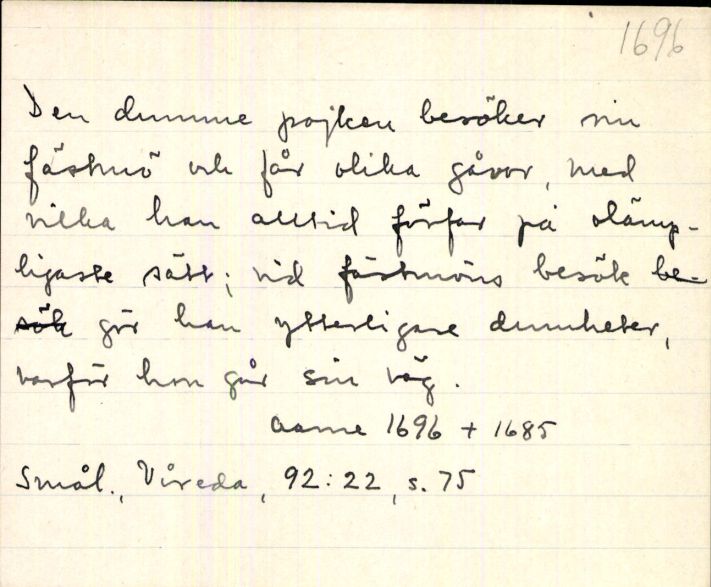 1696
Den dumme pojken besöker sin
fästmö och får olika gåvor, med
vilka han alltid förfar på olämp-
ligaste sätt; vid fästmöns besök be-
sök gör han ytterligare dumheter,
varför hon går sin väg.
Aarne 1696 + 1685
Smål., Vireda, 92:22, s. 75